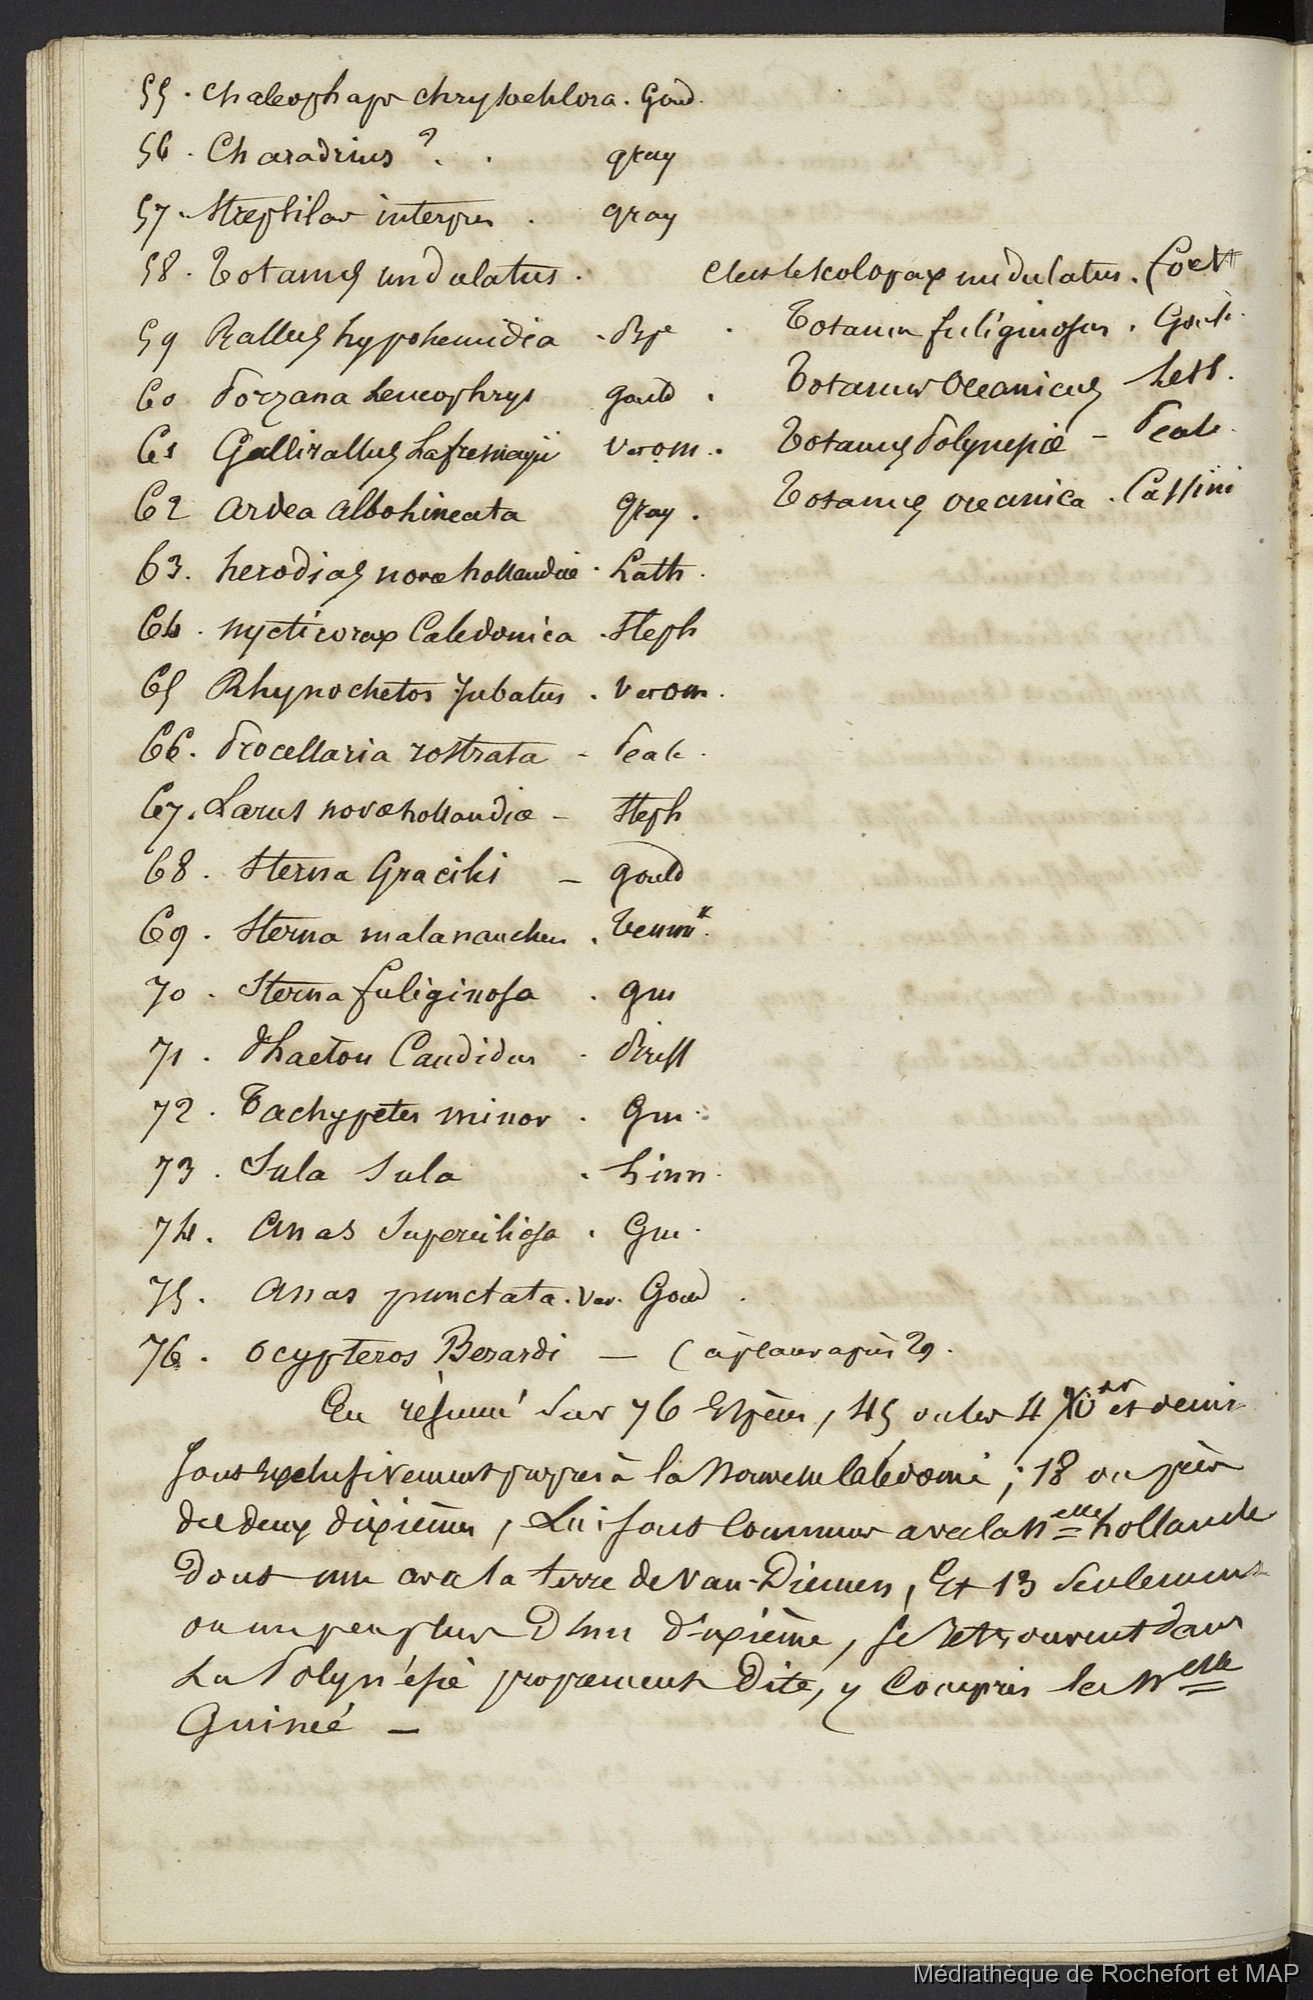 55. Chalcophaps chrysochlora. Goud.
56. Charadrius ?. . gray
57. Strepsilas interpres . gray
58. Totanus undulatus. c'est le Scolopax undulatus. Forst
59 Rallus hypoleucidia . Bp . Totanus fuliginosus. Gould.
60 Porzana Leucophrys gould . Totanus Oceanicus Less.
61 Gallirallus Lafresnayii Verom. Totanus Polynesiæ - Peale.
62 Ardea Albolineata gray. Totanus oceanica . Cassini
63. herodias novæ hollandiæ . Lath.
64. nycticorax Caledonica . Steph
65 Rhynochetos Jubatus . Verom.
66. Procellaria rostrata - Peale.
67. Larus novæ hollandiæ - Steph
68. Sterna Gracilis - gould
69. Sterna melanauchen . Temmk.
70. Sterna fuliginosa . gm
71. Phaeton Candidus . Briss
72. Tachypetes minor . Gm.
73. Sula Sula . Linn.
74. Anas Superciliosa . Gm.
75. Anas punctata. var. Goud .
76. Ocypteros Berardi — (à placer après 29.
En résumé sur 76 Espèces, 45 ou les 4 Xes et demi
sont Exclusivement propres à la Nouvelle Calédonie; 18 ou près
de deux dixièmes, lui sont Communes avec la Nelle hollande
Dont une avec la terre de Van-Diemen, Et 13 Seulement
ou un peu plus D'un dixième, se retrouvent dans
La Polynésie proprement Dite, y Compris la Nelle
Guinée —
Médiathèque de Rochefort et MAP